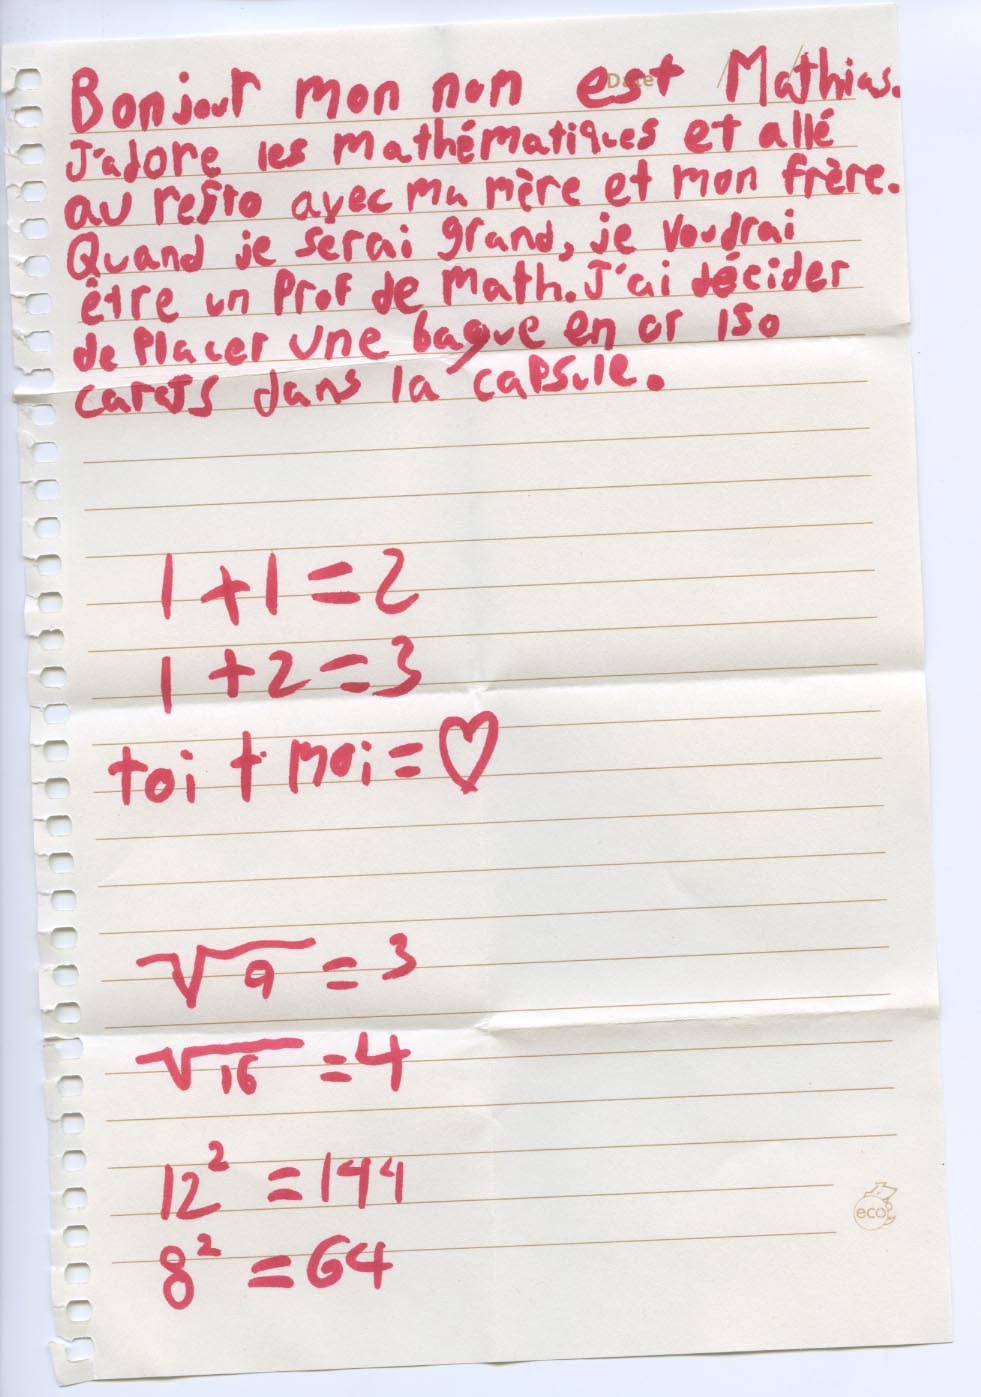 Date
Bonjour mon nom est Mathias.
J'adore les mathématiques et allé
au resto avec ma mère et mon frère.
Quand je serai grand, je voudrai
être un Prof de math. J'ai décider
de Placer une bague en or 150
carats dans la capsule.
1+1=2
1+2=3
toi + moi = ♡
√9 = 3
√16 = 4
12² = 144
8² = 64
eco